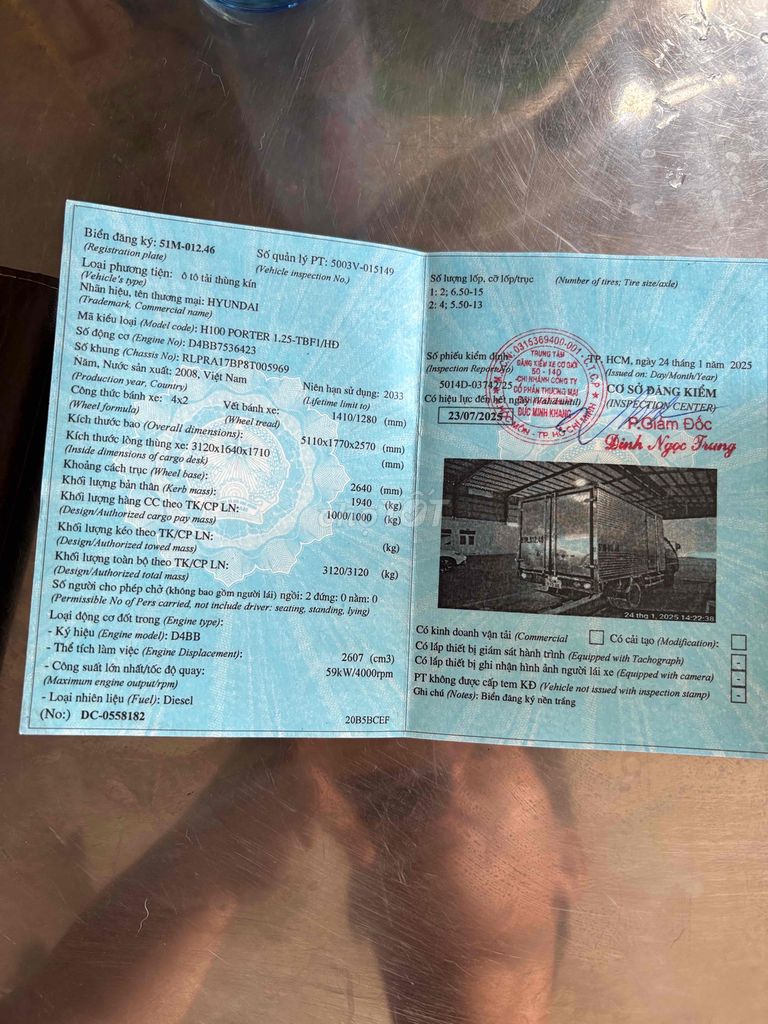 Biển đăng ký: 51M-012.46
(Registration plate)
Số quản lý PT: 5003V-015149
(Vehicle inspection No.)
Loại phương tiện: ô tô tải thùng kín
(Vehicle's type)
Nhãn hiệu, tên thương mại: HYUNDAI
(Trademark, Commercial name)
Mã kiểu loại (Model code): H100 PORTER 1.25-TBF1/HĐ
Số động cơ (Engine No): D4BB7536423
Số khung (Chassis No): RLPRA17BP8T005969
Năm, Nước sản xuất: 2008, Việt Nam
(Production year, Country)
Niên hạn sử dụng: 2033
(Lifetime limit to)
Công thức bánh xe: 4x2
(Wheel formula)
Vết bánh xe: 1410/1280 (mm)
(Wheel tread)
Kích thước bao (Overall dimensions): 5110x1770x2570 (mm)
Kích thước lòng thùng xe: 3120x1640x1710 (mm)
(Inside dimensions of cargo desk)
Khoảng cách trục (Wheel base): 2640 (mm)
Khối lượng bản thân (Kerb mass): 1940 (kg)
Khối lượng hàng CC theo TK/CP LN: 1000/1000 (kg)
(Design/Authorized cargo pay mass)
Khối lượng kéo theo TK/CP LN: (kg)
(Design/Authorized towed mass)
Khối lượng toàn bộ theo TK/CP LN: 3120/3120 (kg)
(Design/Authorized total mass)
Số người cho phép chở (không bao gồm người lái) ngồi: 2 đứng: 0 nằm: 0
(Permissible No of Pers carried, not include driver: seating, standing, lying)
Loại động cơ đốt trong (Engine type):
- Ký hiệu (Engine model): D4BB
- Thể tích làm việc (Engine Displacement): 2607 (cm3)
- Công suất lớn nhất/tốc độ quay: 59kW/4000rpm
(Maximum engine output/rpm)
- Loại nhiên liệu (Fuel): Diesel
(No:) DC-0558182
20B5BCEF
Số lượng lốp, cỡ lốp/trục (Number of tires; Tire size/axle)
1: 2; 6.50-15
2: 4; 5.50-13
Số phiếu kiểm định
(Inspection Report No)
5014D-03742/25
Có hiệu lực đến hết ngày (Valid until)
23/07/2025
TP. HCM, ngày 24 tháng 1 năm 2025
(Issued on: Day/Month/Year)
CƠ SỞ ĐĂNG KIỂM
(INSPECTION CENTER)
P.Giám Đốc
Đinh Ngọc Trung
0315369400-001
TRUNG TÂM
ĐĂNG KIỂM XE CƠ GIỚI
50 - 14D
CHI NHÁNH CÔNG TY
CỔ PHẦN THƯƠNG MẠI
ĐỨC MINH KHANG
TP. HỒ CHÍ MINH
24 thg 1, 2025 14:22:38
Có kinh doanh vận tải (Commercial
Có cải tạo (Modification):
Có lắp thiết bị giám sát hành trình (Equipped with Tachograph) -
Có lắp thiết bị ghi nhận hình ảnh người lái xe (Equipped with camera) -
PT không được cấp tem KĐ (Vehicle not issued with inspection stamp) -
Ghi chú (Notes): Biển đăng ký nền trắng